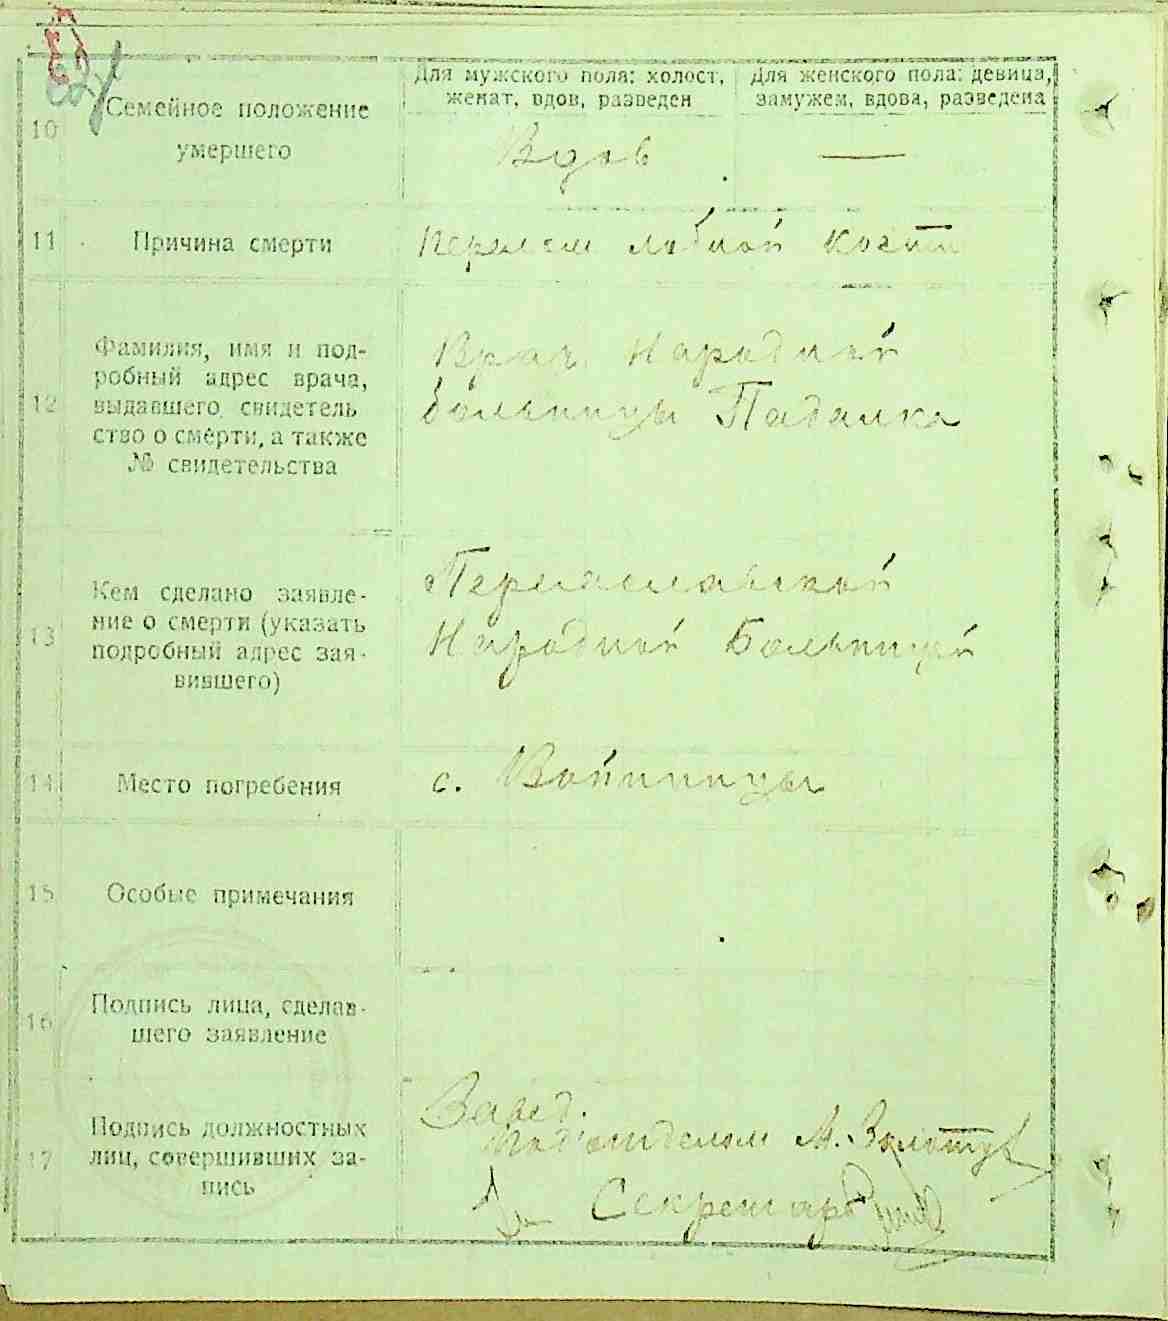 Для мужского пола: холост,
женат, вдов, разведен
Для женского пола: девица,
замужем, вдова, разведена
10
Семейное положение
умершего
Вдов
—
11
Причина смерти
Перелом лобной кости
12
Фамилия, имя и под-
робный адрес врача,
выдавшего свидетель
ство о смерти, а также
№ свидетельства
Врач Народной
больницы Падалка
13
Кем сделано заявле-
ние о смерти (указать
подробный адрес зая-
вившего)
Переяславской
Народной Больницей
14
Место погребения
с. Войницы
15
Особые примечания
16
Подпись лица, сделав-
шего заявление
17
Подпись должностных
лиц, совершивших за-
пись
Завед.
подотделом М.
Секретарь